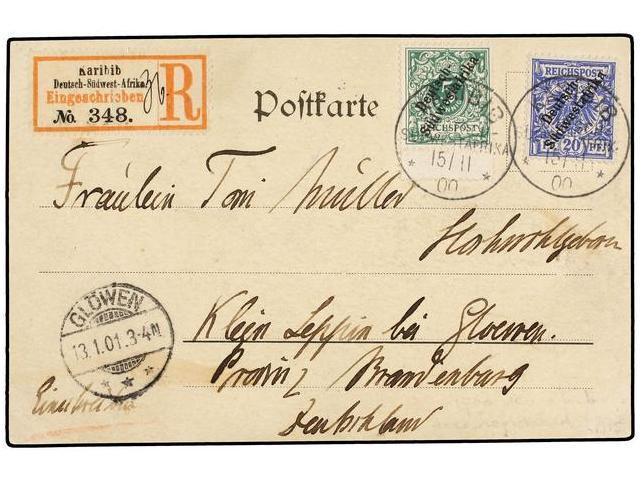 Karibib
Deutsch-Südwest-Afrika
Eingeschrieben
No. 348.
R
Postkarte
Deutsch-
Südwest-Afrika
REICHSPOST
REICHSPOST
Deutsch-
Südwest-Afrika
20
15/11
00
15/11
00
Fräulein Toni Müller
Hochwohlgeboren
GLÖWEN
13.1.01.3-4N
Klein Leppin bei Gloewen.
Provinz Brandenburg
Deutschland
Einschreiben